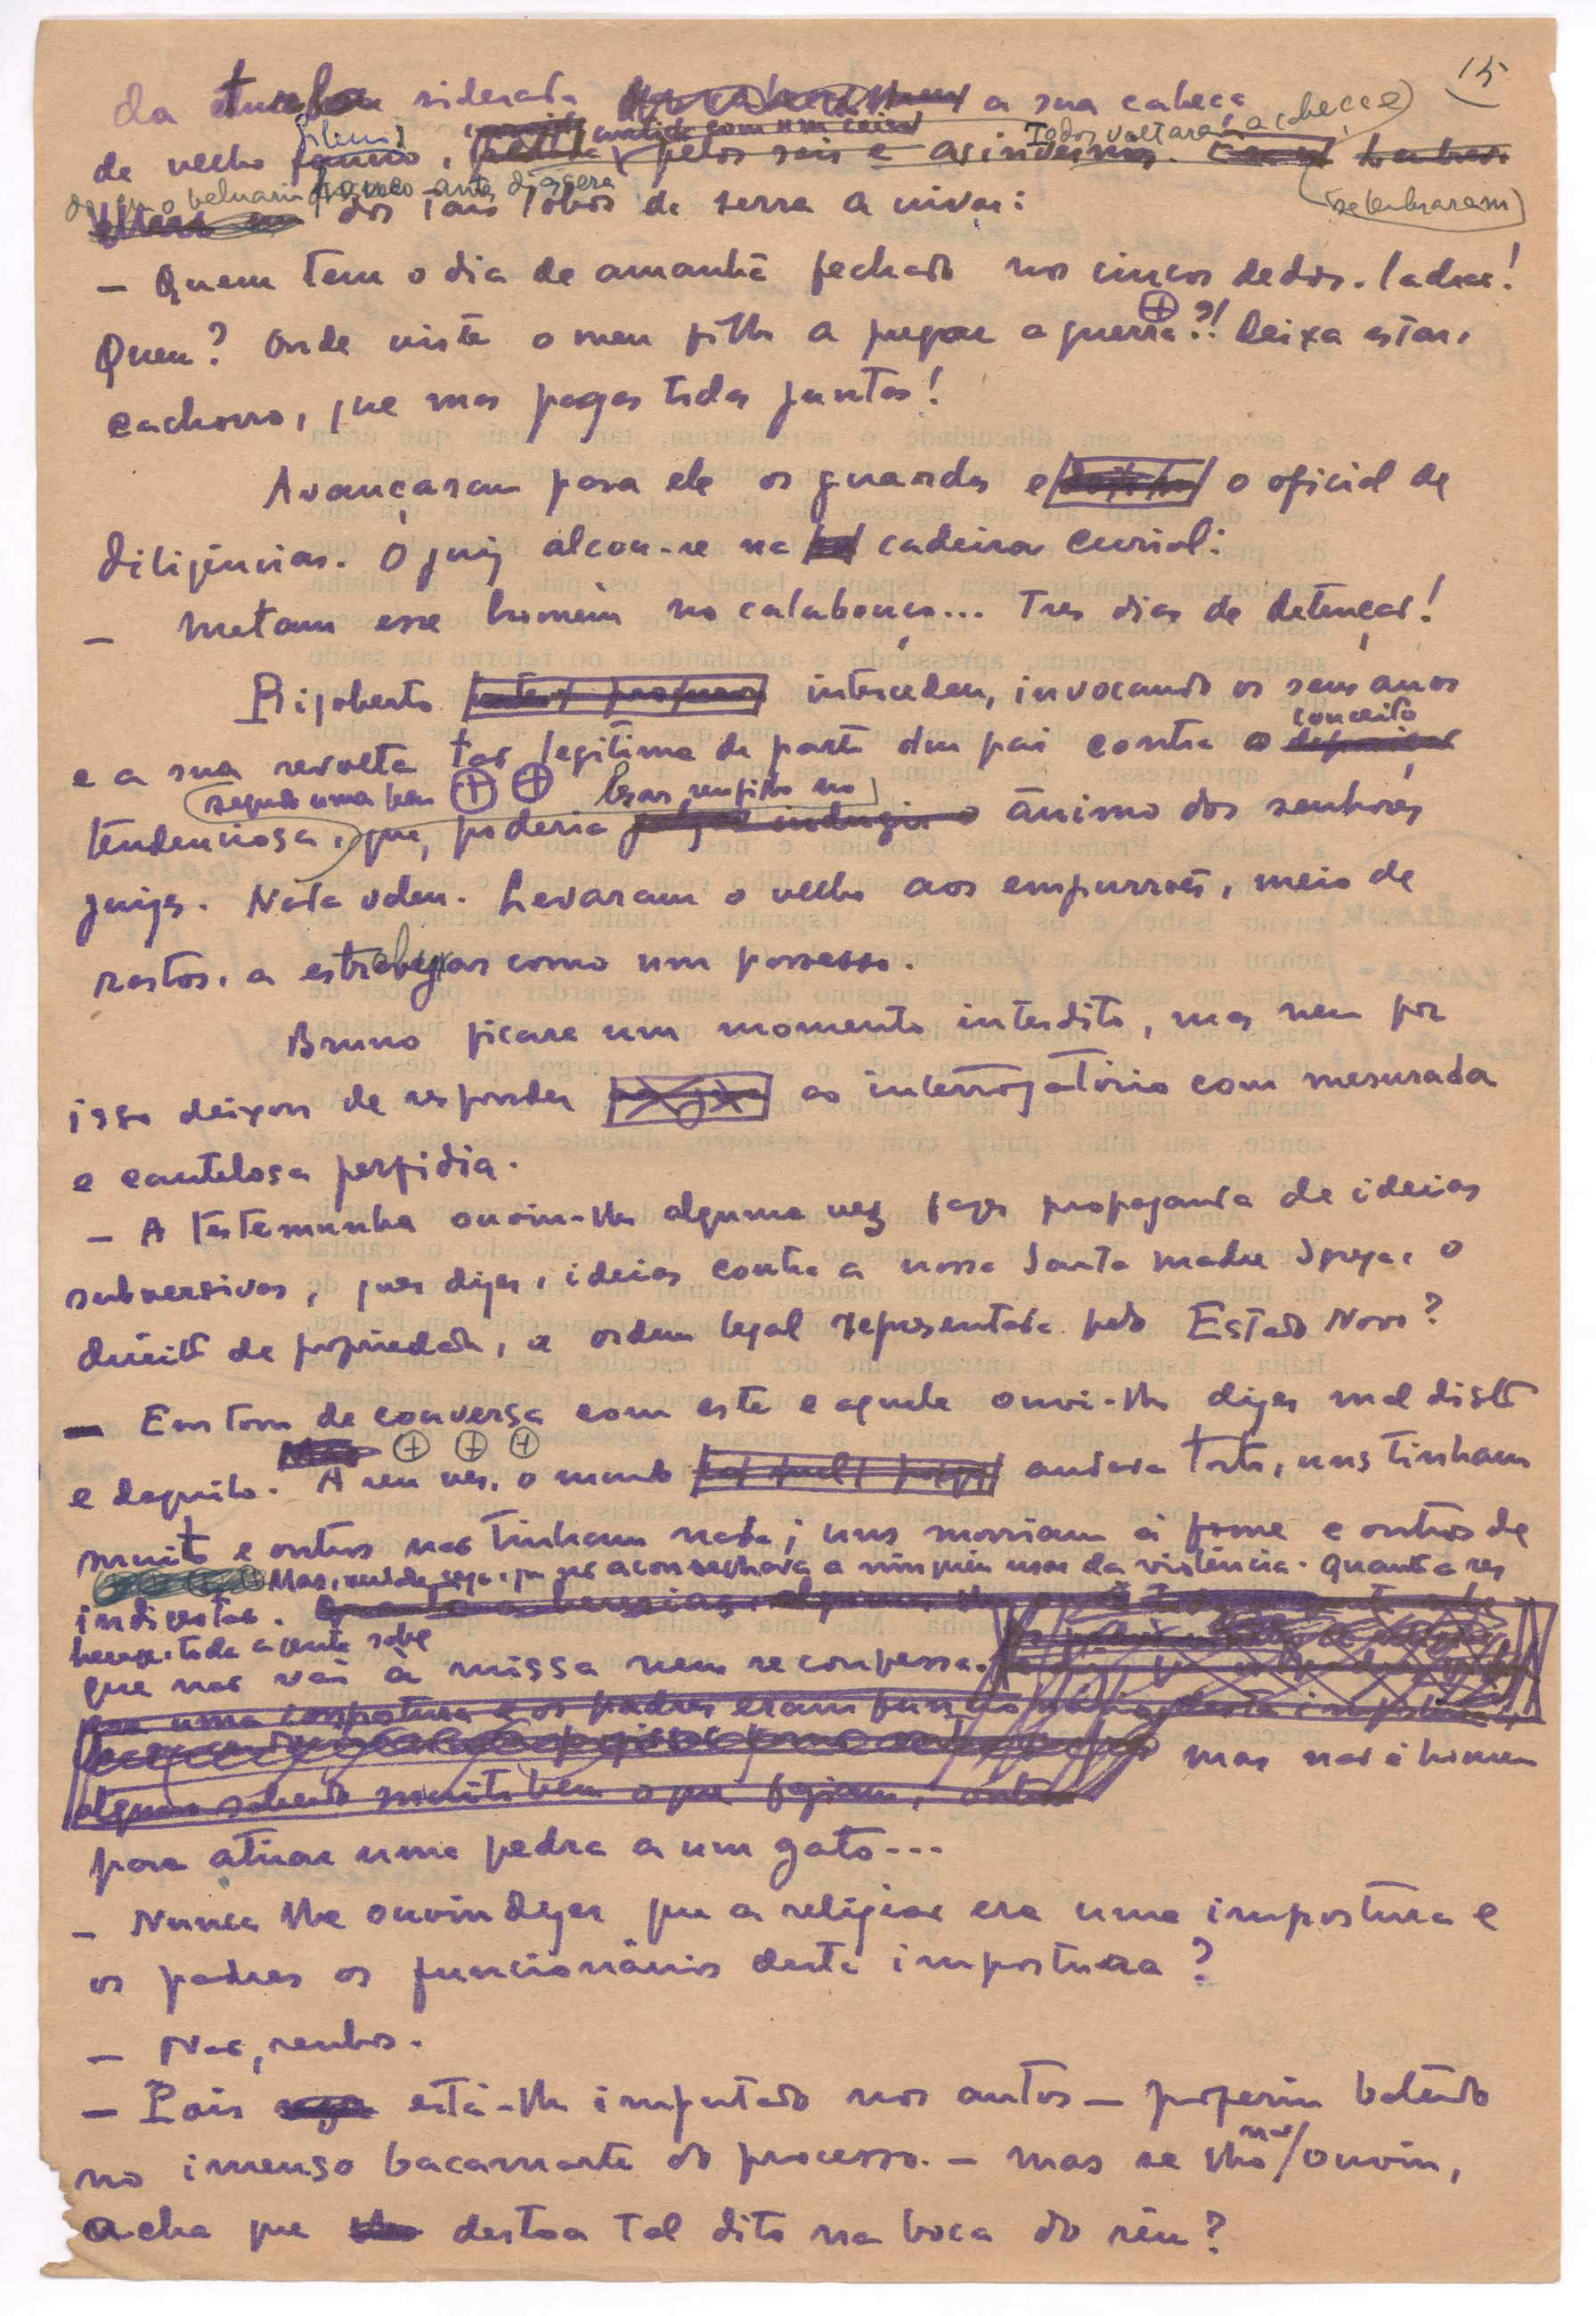 15
da turba siderada a sua cabeça
Todos voltaram a cabeça
de velho fauno, pelos sóis e as invernias.
se lembraram
pouco antes dissera
dos tais lobos de serra a uivar:
— Quem tem o dia de amanhã fechado nos cincos dedos, ladrão!
Quem? Onde viste o meu filho a pregar a guerra ⊕?! Deixa estar,
cachorro, que mas pagas todas juntas!
Avançaram para ele os guardas e o oficial de
diligências. O juiz alçou-se na cadeira curial:
— Metam esse homem no calabouço... Tres dias de detenção!
Rigoberto intercedeu, invocando os seus anos
conceito
e a sua revolta tão legitima de parte dum pai contra o
⊕ ⊕
tendenciosa, que, poderia ânimo dos senhores
juizes. Nada valeu. Levaram o velho aos empurrões, meio de
rastos, a estrebuxar como um possesso.
Bruno ficara um momento interdito, mas nem por
isso deixou de responder ao interrogatório com mesurada
e cautelosa perfidia.
— A testemunha ouviu-lhe alguma vez fazer propaganda de ideias
subversivas, quer dizer, ideias contra a nossa Santa Madre Igreja, o
direito de propriedade, a ordem legal representada pelo Estado Novo?
— Em tom de conversa com este e aquele ouvi-lhe dizer mal disto
⊕ ⊕ ⊕
e daquilo. A seu ver, o mundo andava torto, uns tinham
muito e outros não tinham nada; uns morriam à fome e outros de
Mas, verdade seja, que não aconselhava a ninguém usar da violência. Quanto a ser
indigestão.
herege, toda a gente sabe
que não vai à missa nem se confessa.
uma impostura e os padres eram funcionários desta impostura
mas não é homem
alguns sabendo muito bem o que faziam,
para atirar uma pedra a um gato...
— Nunca lhe ouviu dizer que a religião era uma impostura e
os padres os funcionários desta impostura?
— Não, senhor.
— Pois está-lhe imputado nos autos — proferiu batendo
não
no imenso bacamarte do processo. — mas se lho / ouviu,
acha que destoa tal dito na boca do réu?